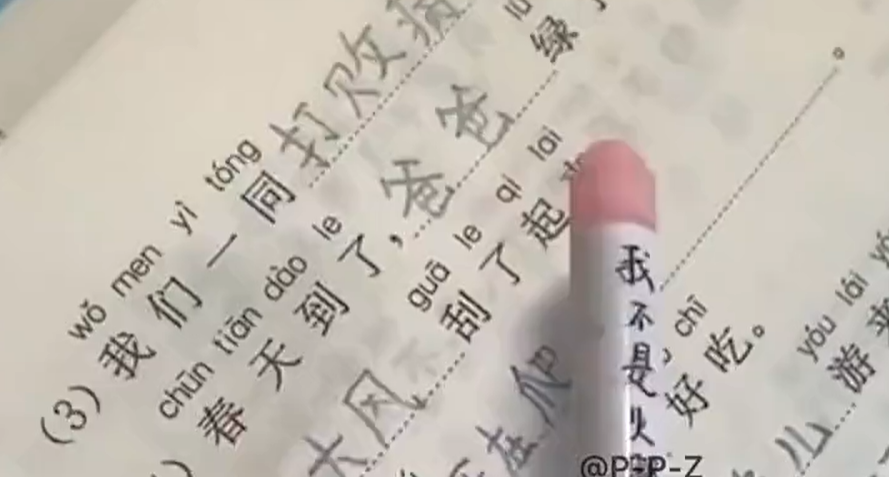 lǜ
wǒ men yì tóng
(3) 我们一同打败病
chūn tiān dào le
春天到了，爸爸绿了
guā le qǐ lái
大风刮了起
。
chī
好吃。
在爬
yóu lái yóu
儿游来
我不是火
@P-P-Z